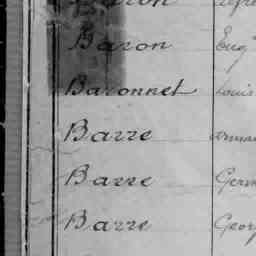 Baron Eug
Baronnet Louis
Barre Arma
Barre Germ
Barre Geor